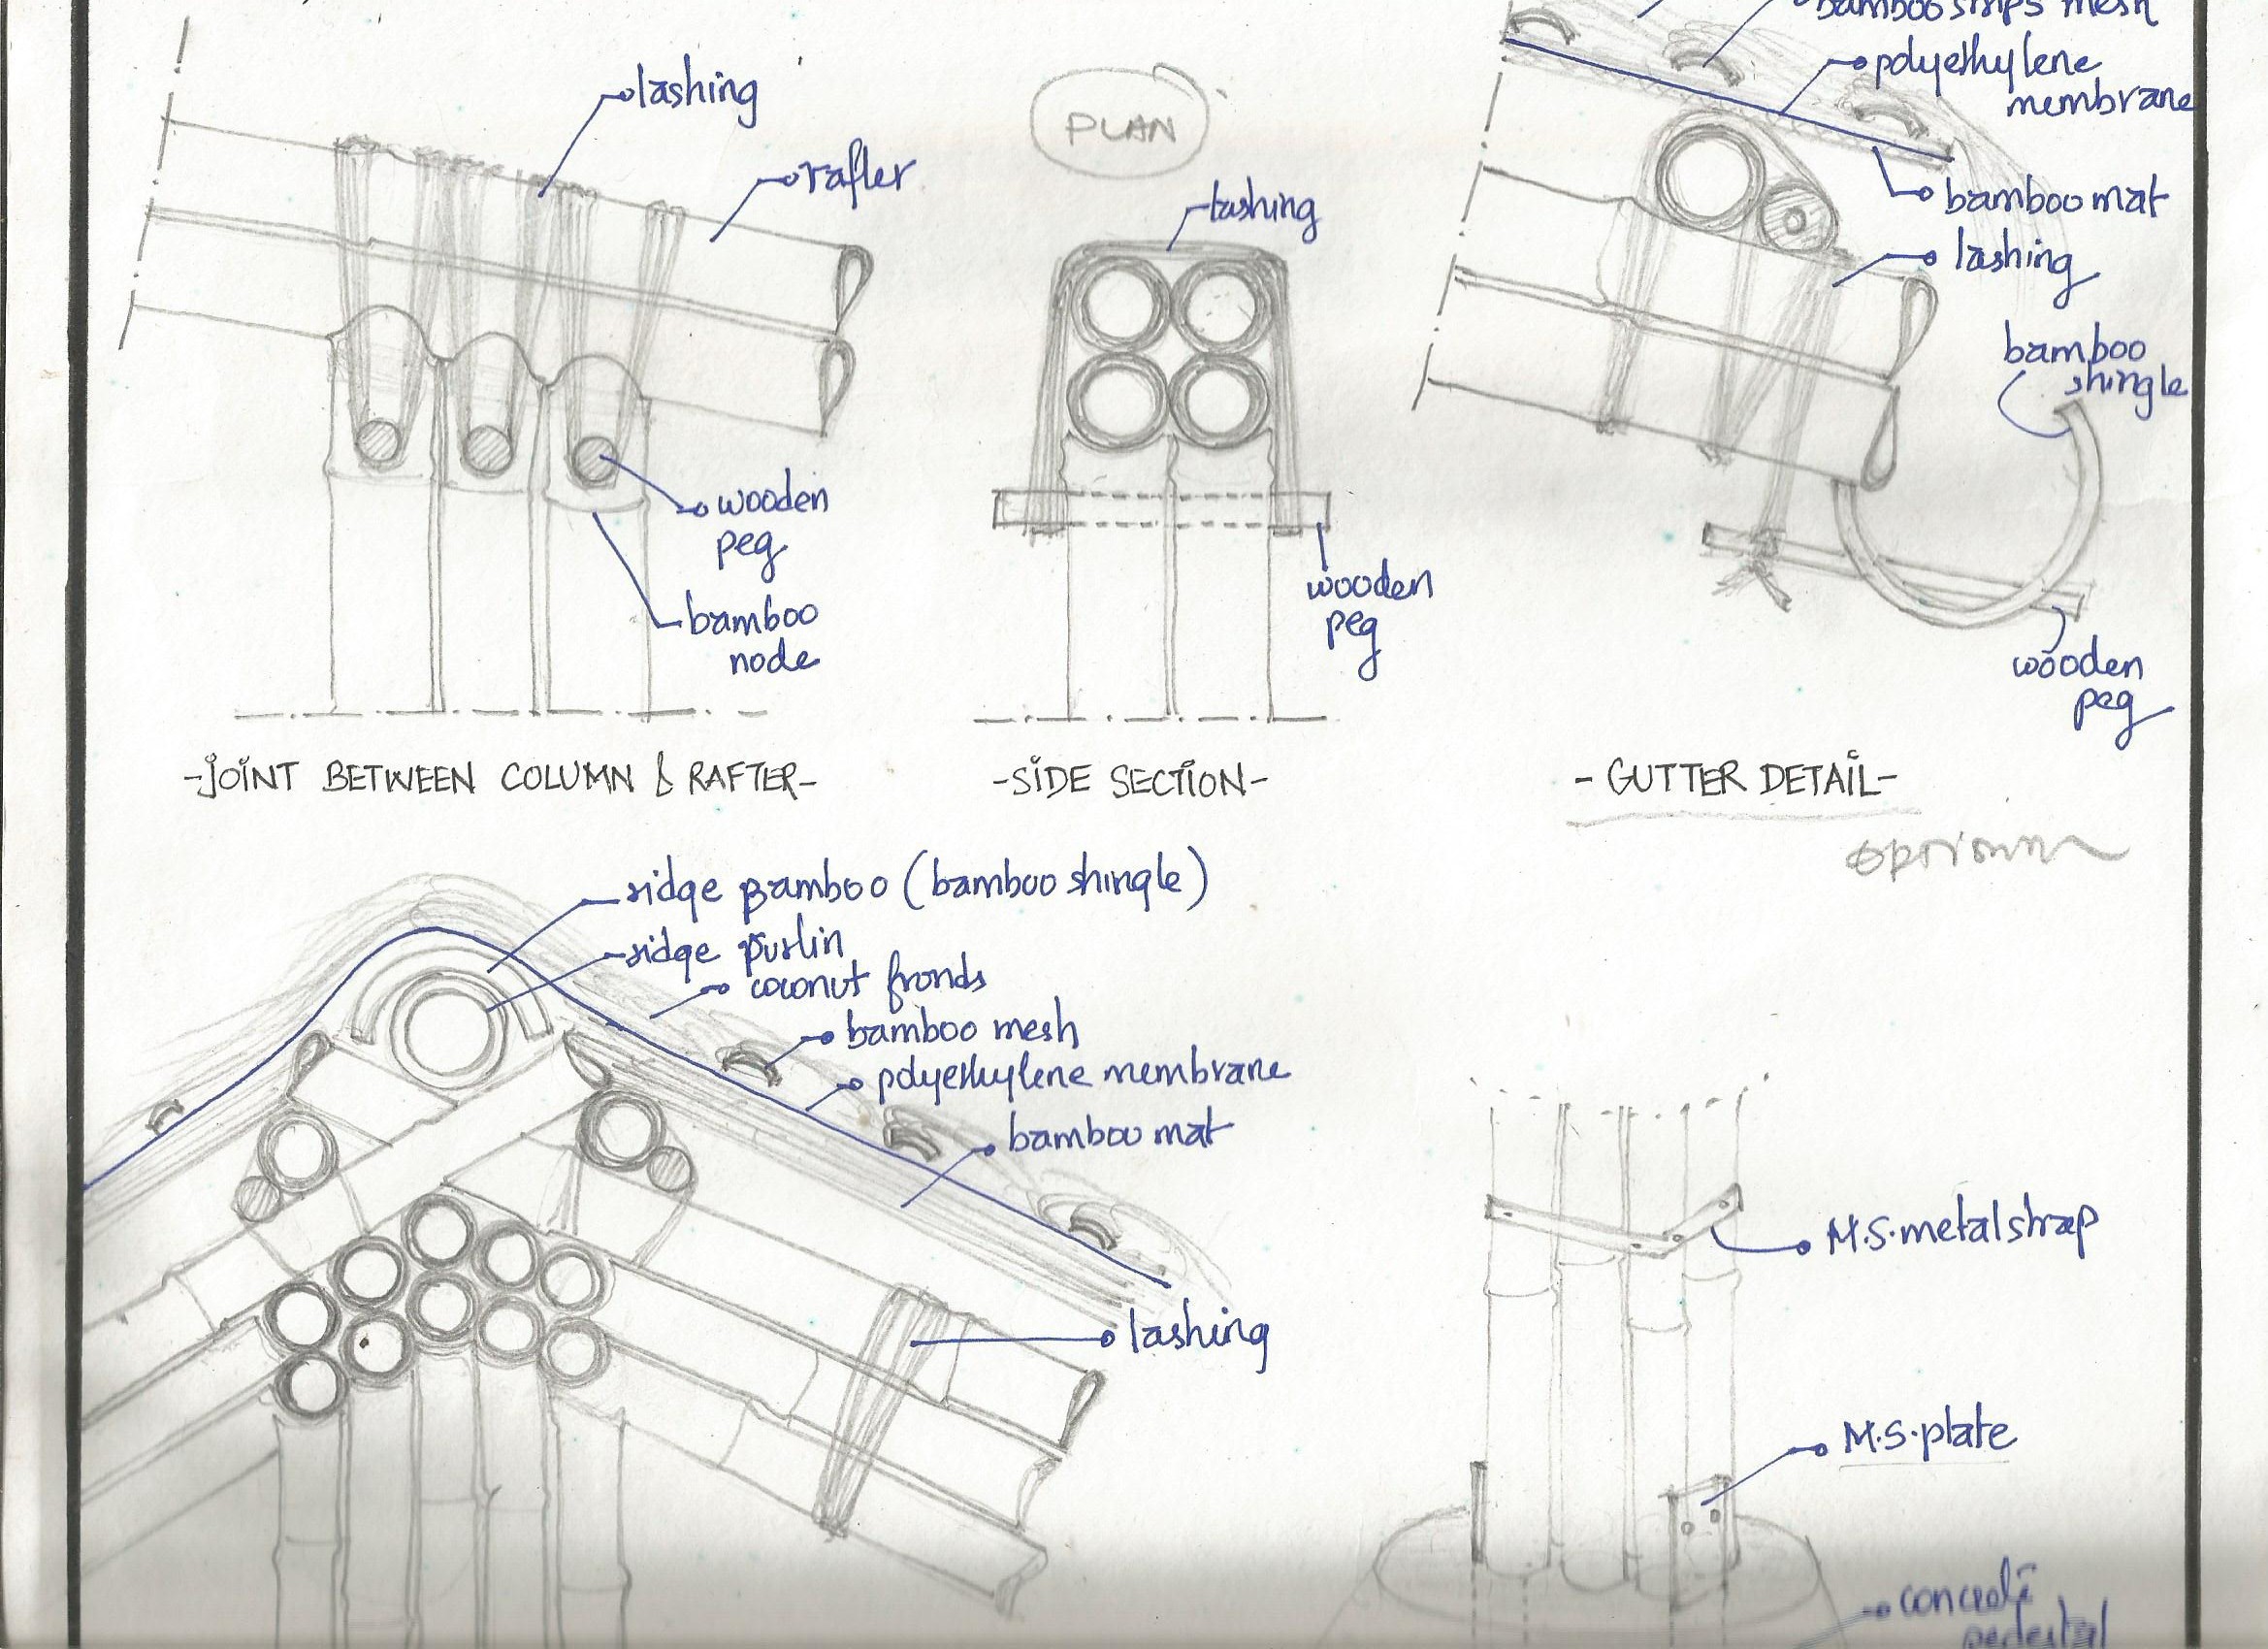 lashing
rafter
wooden
peg
bamboo
node
-JOINT BETWEEN COLUMN & RAFTER-
PLAN
lashing
wooden
peg
-SIDE SECTION-
bamboo strips mesh
polyethylene
membrane
bamboo mat
lashing
bamboo
shingle
wooden
peg
- GUTTER DETAIL-
ridge bamboo (bamboo shingle)
ridge purlin
coconut fronds
bamboo mesh
polyethylene membrane
bamboo mat
lashing
M.S. metal strap
M.S. plate
concrete
pedestal